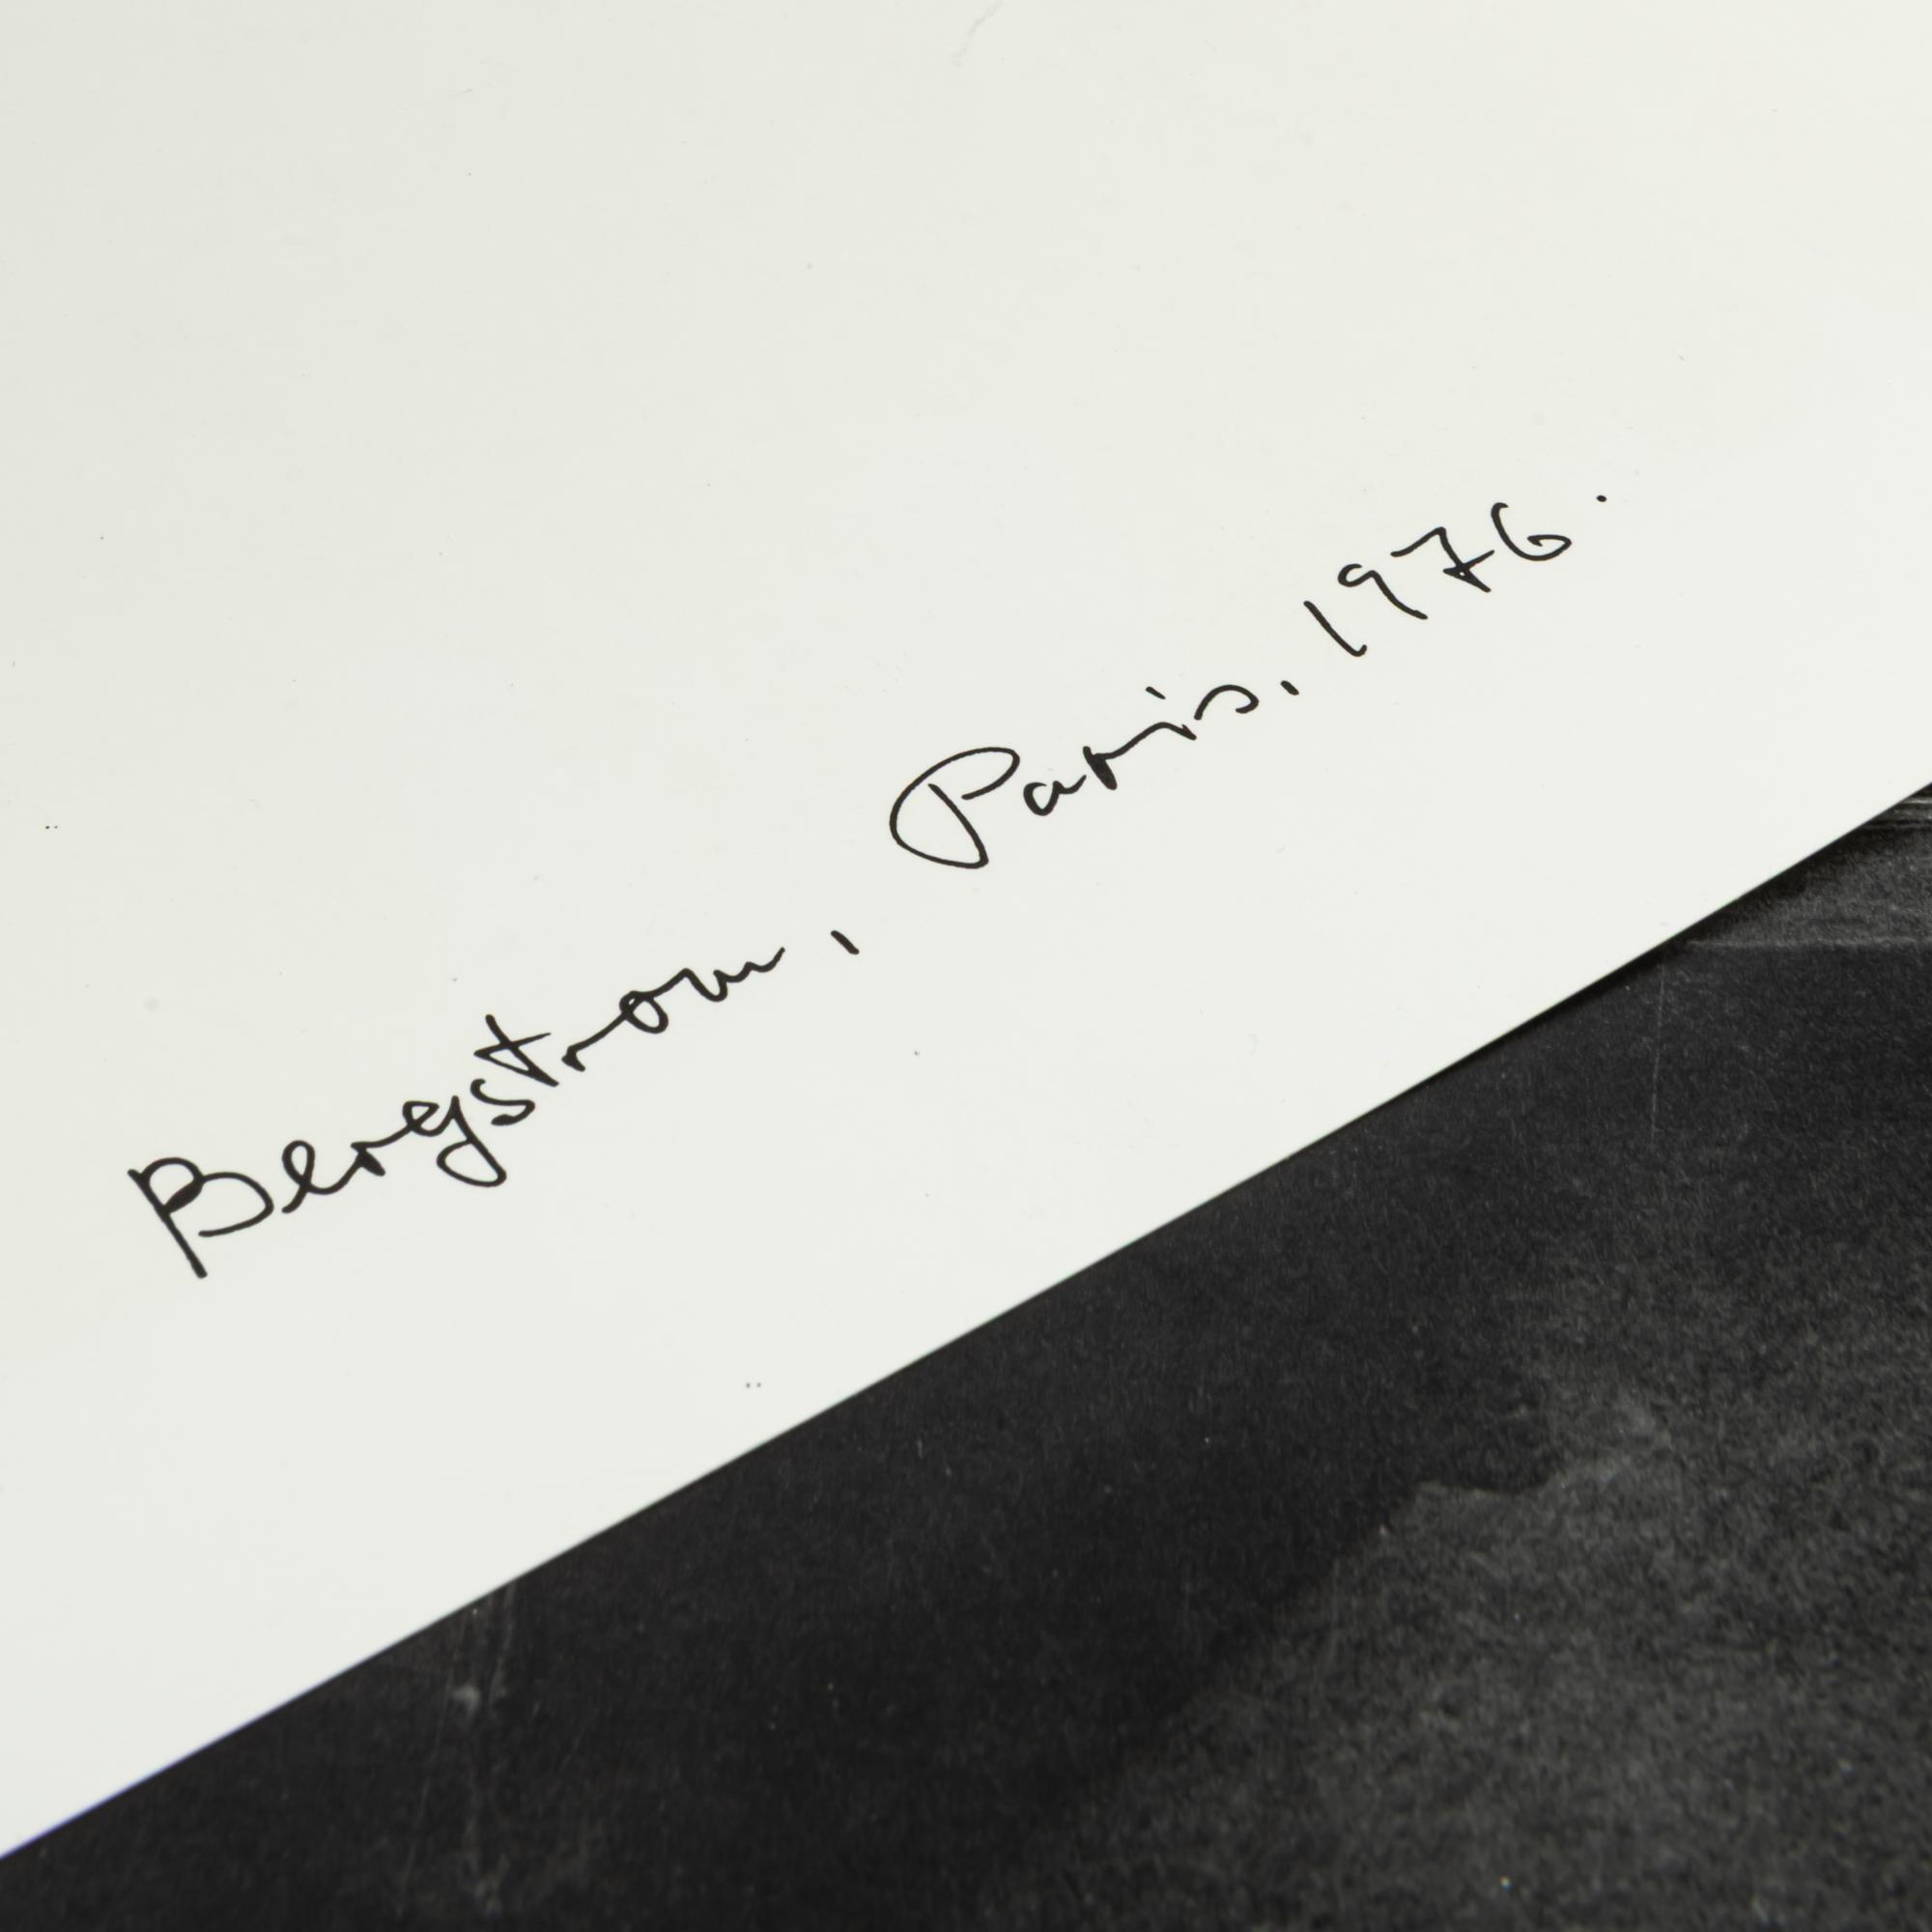 Bergstrom, Paris, 1976.